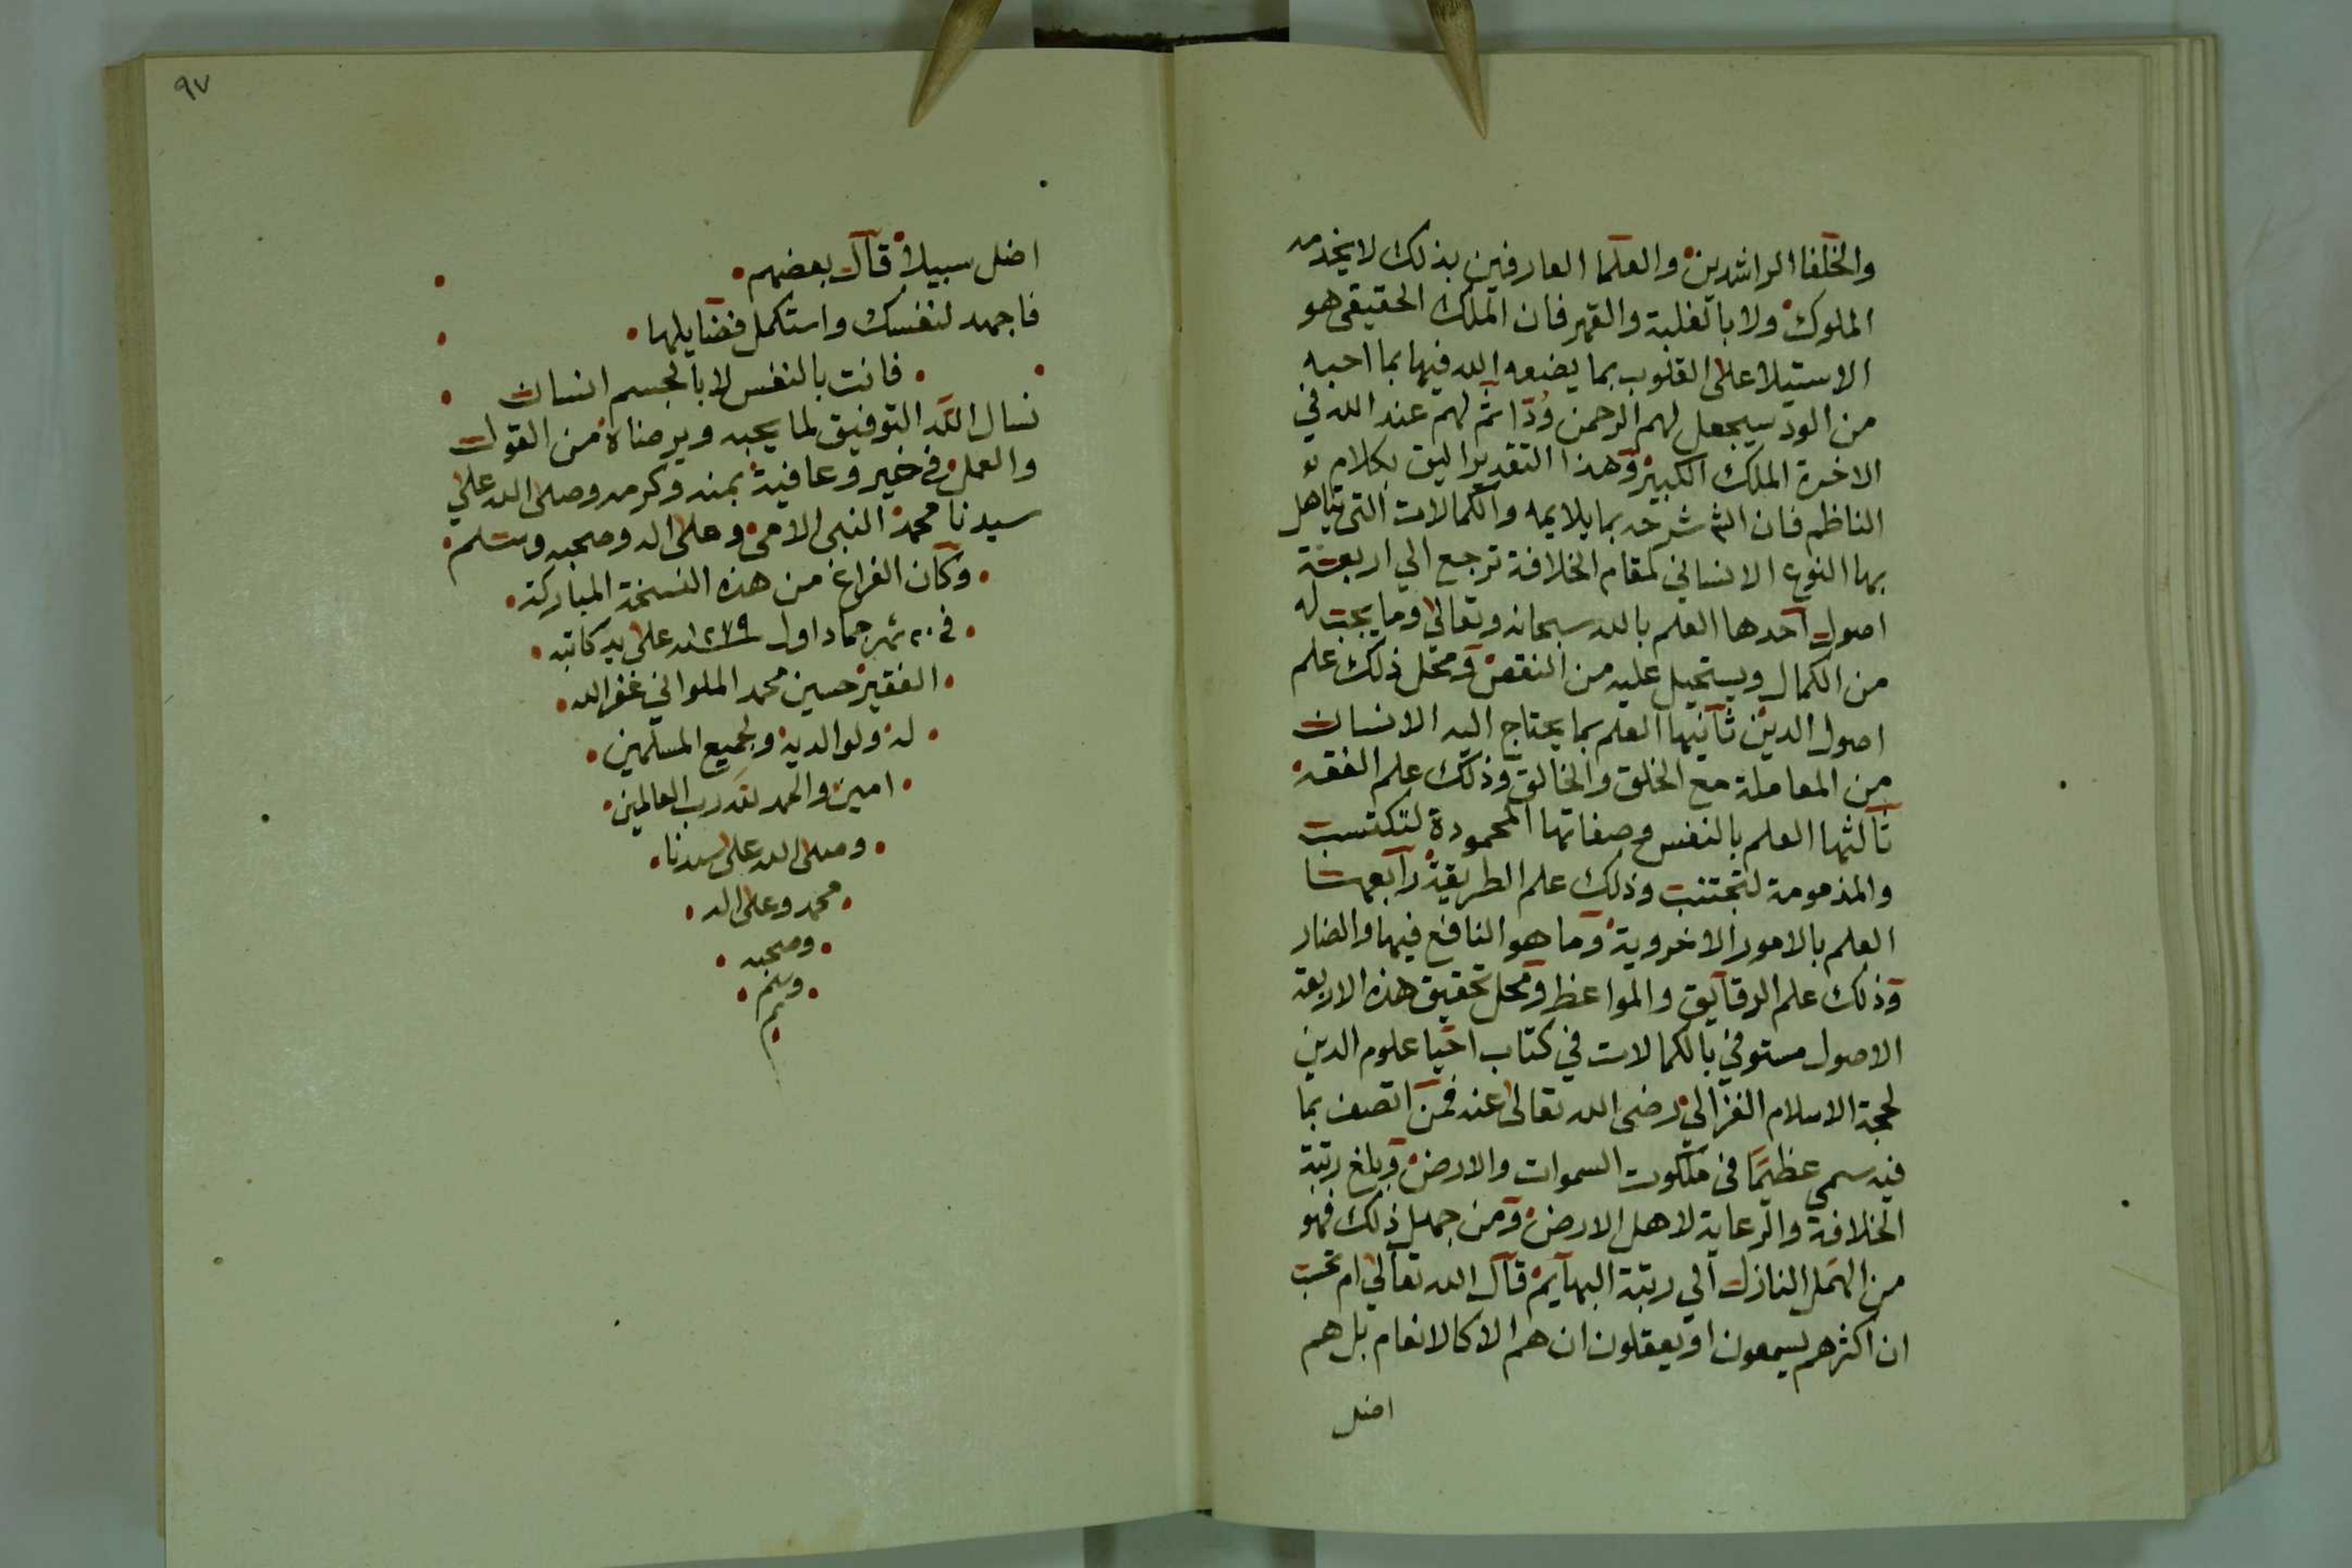 والخلفا الراشدين والعلما العارفين بذلك لا بخدمه
الملوك ولا بالغلبة والقهر فان الملك الحقيقي هو
الاستيلا على القلوب بما يضعه الله فيها بما احبه
من الود سيجعل لهم الرحمن ودا ثم لهم عند الله في
الاخرة الملك الكبير وهذا التقدير اليق بكلام
الناظم فان الشي شرحه بما يلايمه والكمالات التي يتاهل
بها النوع الانساني لمقام الخلافة ترجع الي اربعة
اصول احدها العلم بالله سبحانه وتعالى وما يجب له
من الكمال ويستحيل عليه من النقص ومحل ذلك علم
اصول الدين ثانيها العلم بما يحتاج اليه الانسان
من المعاملة مع الخلق والخالق وذلك علم الفقه
ثالثها العلم بالنفس وصفاتها المحمودة لتكتسب
والمذمومة لتجتنب وذلك علم الطريقة رابعها
العلم بالامور الاخروية وما هو النافع فيها والضار
وذلك علم الرقايق والمواعظ ومحل تحقيق هذه الاربعة
الاصول مستوفي بالكمالات في كتاب احيا علوم الدين
لحجة الاسلام الغزالي رضى الله تعالى عنه فمن اتصف بما
فيه سمي عظيما في ملكوت السموات والارض وبلغ رتبة
الخلافة والرعاية لاهل الارض ومن جهل ذلك فهو
من الهمل النازل الي رتبة البهايم قال الله تعالي ام تحسب
ان اكثرهم يسمعون او يعقلون ان هم الا كالانعام بل هم
اضل
٩٧
اضل سبيلا قال بعضهم
فاجهد لنفسك واستكمل فضايلها
فانت بالنفس لا بالجسم انسان
نسال الله التوفيق لما يحبه ويرضاه من القول
والعمل في خير وعافية بمنه وكرمه وصلى الله علي
سيدنا محمد النبي الامي وعلى اله وصحبه وسلم
وكان الفراغ من هذه النسخة المباركة
في ٢٠ شهر جماد اول ١٢٧٩ـنه على يد كاتبه
الفقير حسين محمد الملواني غفر الله
له ولوالديه ولجميع المسلمين
امين والحمد لله رب العالمين
وصلى الله على سيدنا
محمد وعلى اله
وصحبه
وسلم
م